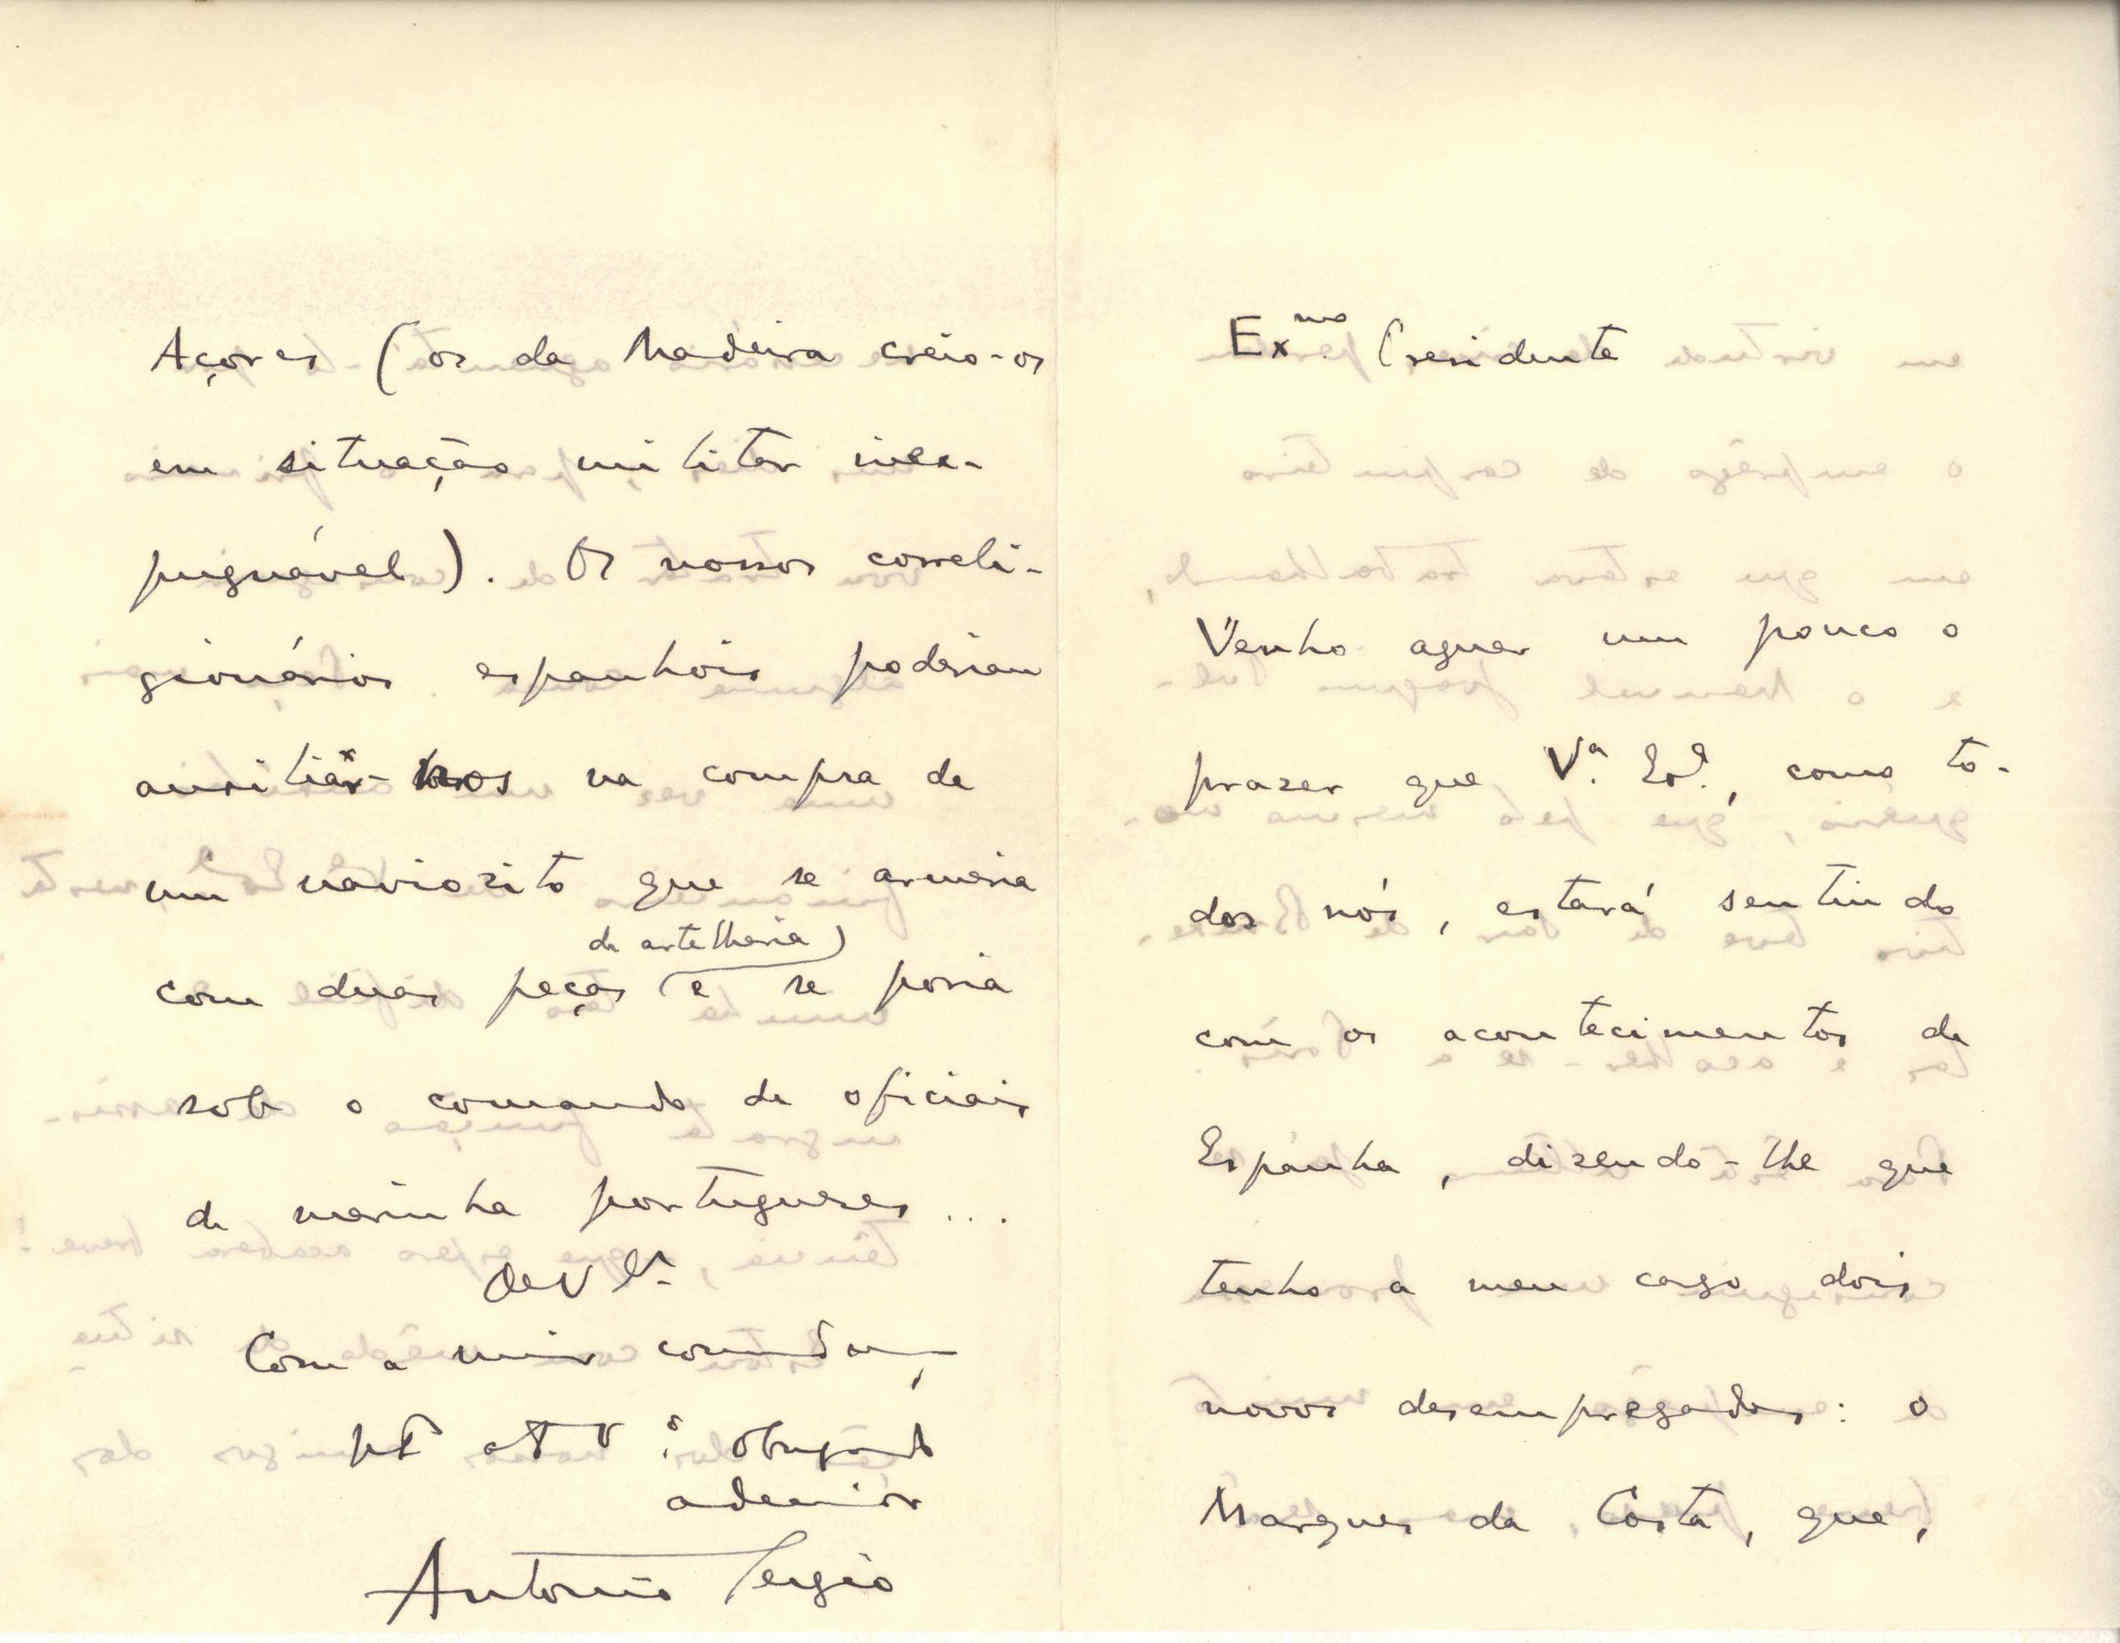 Açores (os da Madeira creio-os
em situação militar inex-
pugnável). Os nossos correli-
gionários espanhois poderiam
auxiliar-nos na compra de
um naviozito que se armaria
de artelharia
com duas peças e se poria
sob o comando de oficiais
de marinha portugueses ...
De V. Ex.ª
Com a maior consideração,
obrigado
admirador
António Sérgio
Ex.mo Presidente
Venho aguar um pouco o
prazer que V.ª Ex.ª, como to-
dos nós, estará sentindo
com os acontecimentos de
Espanha, dizendo-lhe que
tenho a meu cargo dois
novos desempregados: o
Marques da Costa, que,